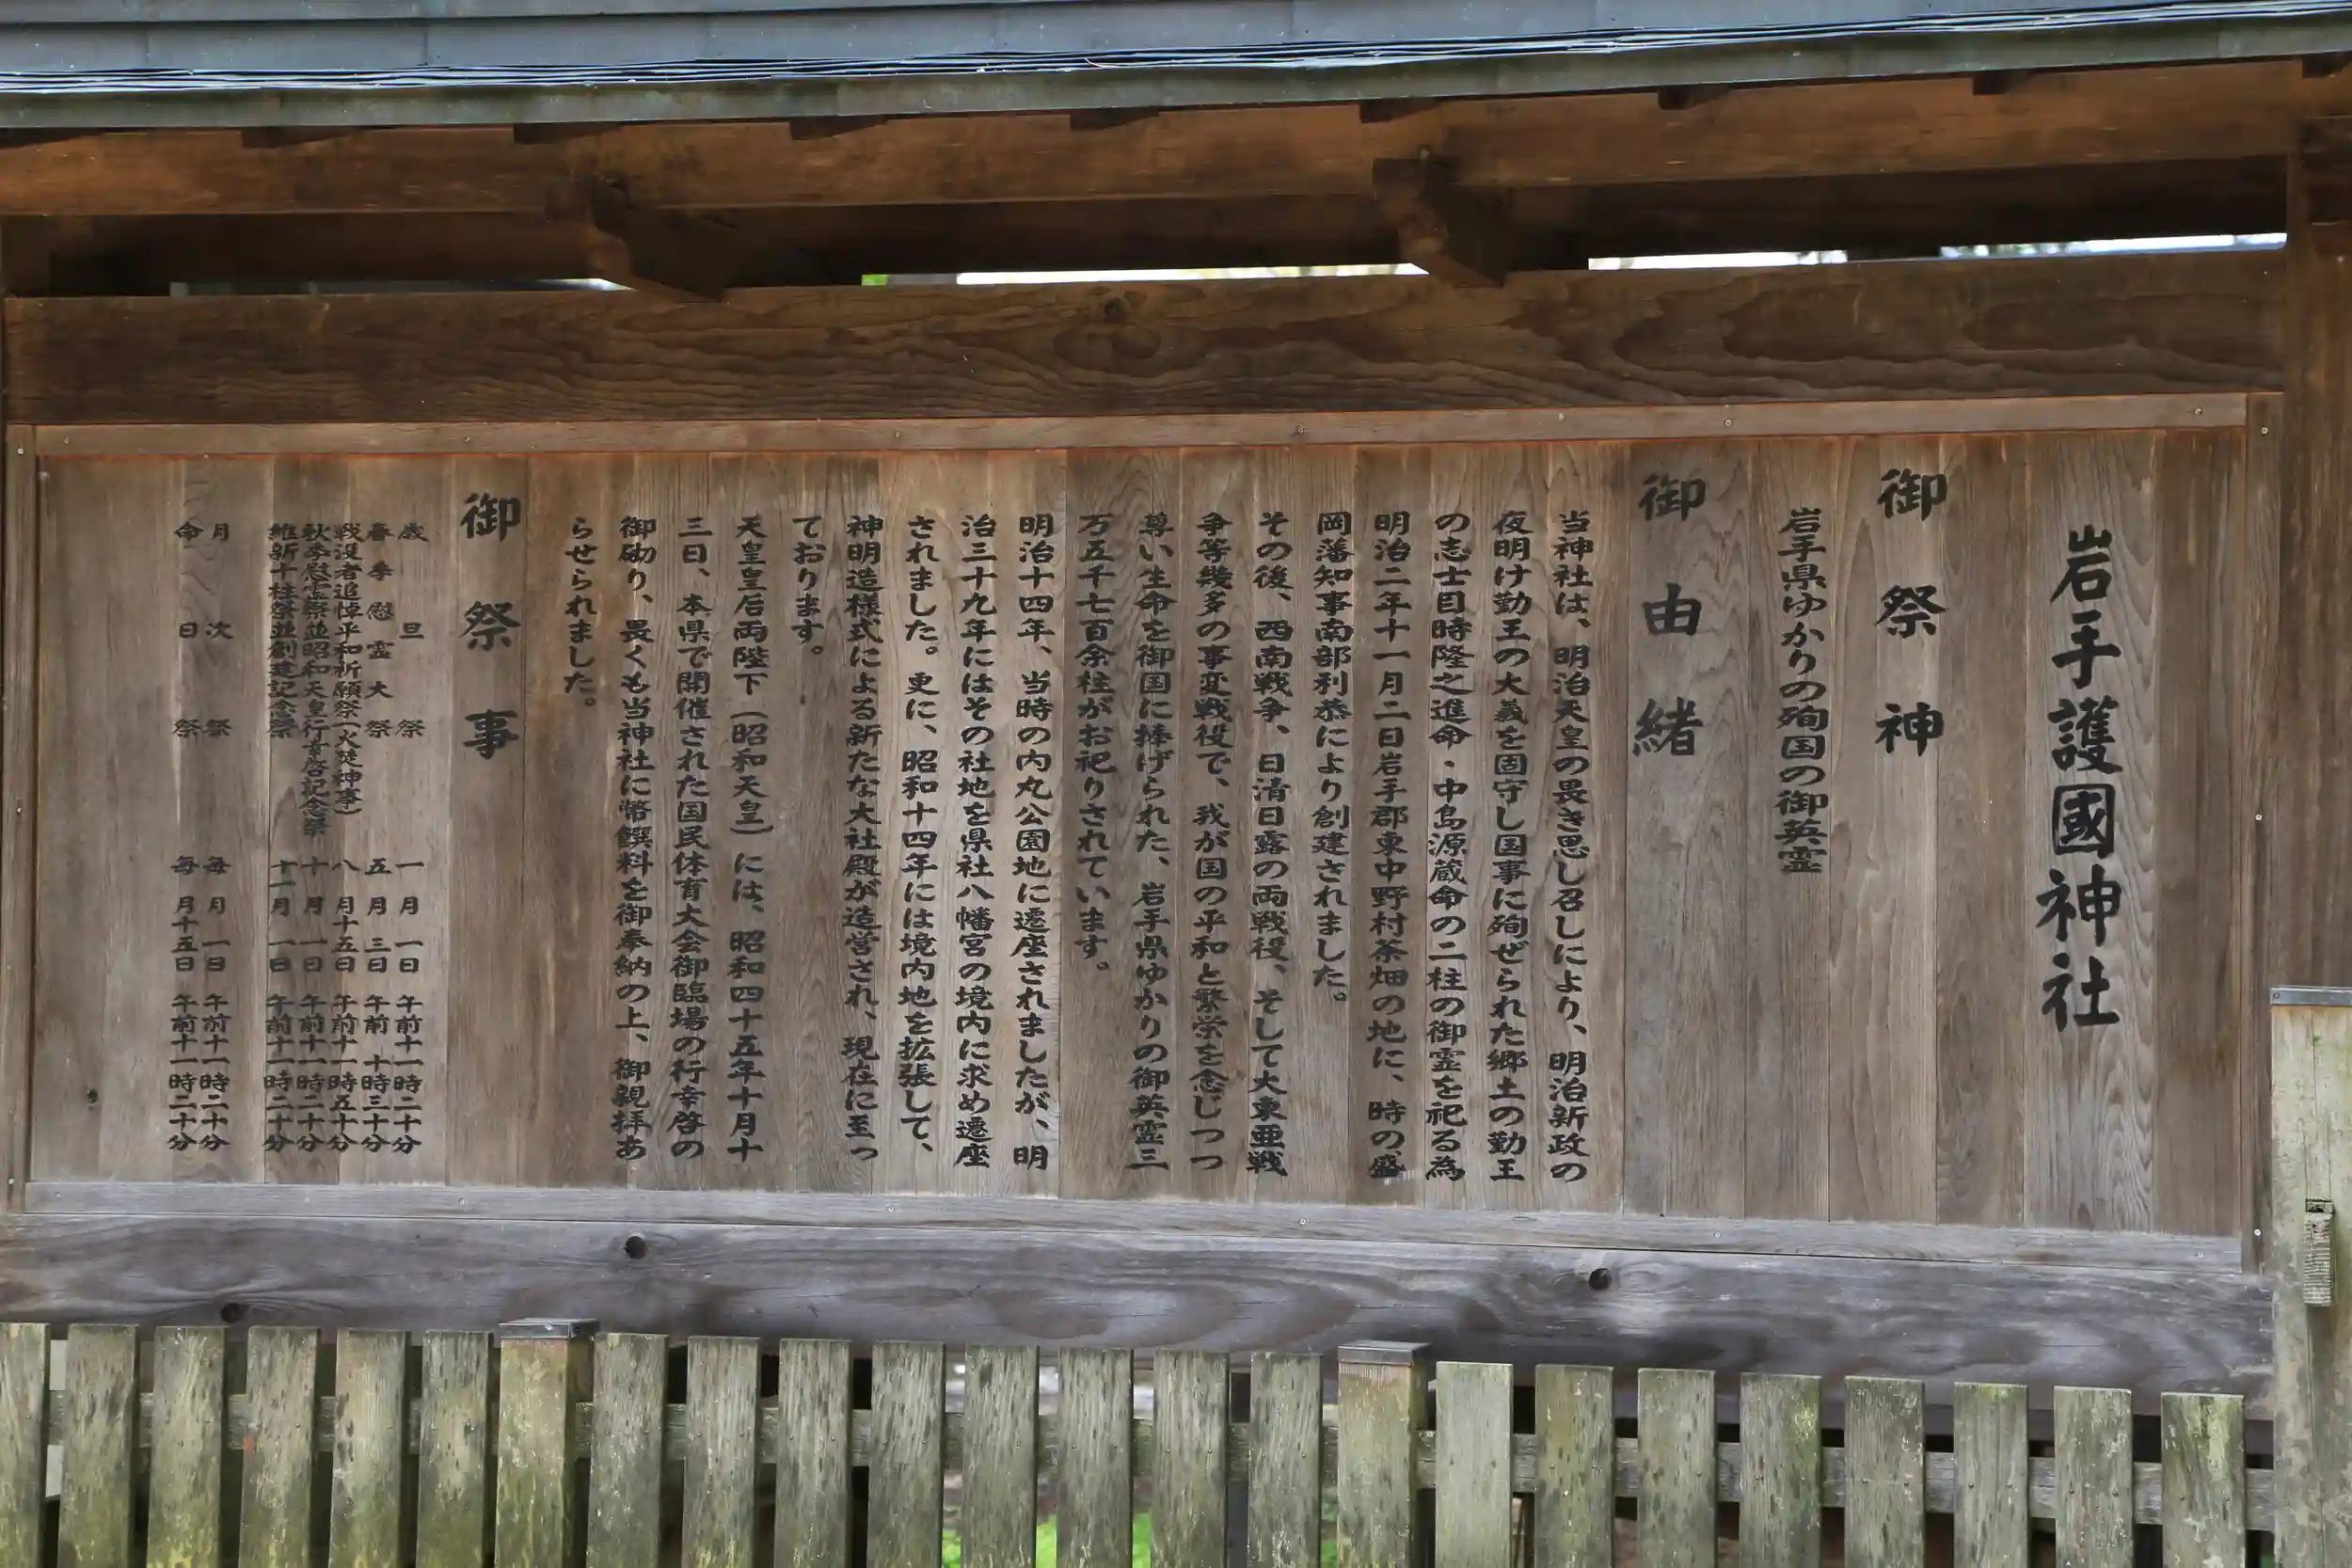 岩手護國神社
御祭神
岩手県ゆかりの殉国の御英霊
御由緒
当神社は、明治天皇の畏き思し召しにより、明治新政の
夜明け勤王の大義を固守し国事に殉ぜられた郷土の勤王
の志士目時隆之進命・中島源蔵命の二柱の御霊を祀る為
明治二年十一月二日岩手郡東中野村茶畑の地に、時の盛
岡藩知事南部利恭により創建されました。
その後、西南戦争、日清日露の両戦役、そして大東亜戦
争等幾多の事変戦役で、我が国の平和と繁栄を念じつつ
尊い生命を御国に捧げられた、岩手県ゆかりの御英霊三
万五千七百余柱がお祀りされています。
明治十四年、当時の内丸公園地に遷座されましたが、明
治三十九年にはその社地を県社八幡宮の境内に求め遷座
されました。更に、昭和十四年には境内地を拡張して、
神明造様式による新たな大社殿が造営され、現在に至っ
ております。
天皇皇后両陛下(昭和天皇)には、昭和四十五年十月十
三日、本県で開催された国民体育大会御臨場の行幸啓の
御砌り、畏くも当神社に幣饌料を御奉納の上、御親拝あ
らせられました。
御祭事
歳旦祭 一月一日 午前十一時二十分
春季慰霊大祭 五月三日 午前十時三十分
戦没者追悼平和祈願祭(火焚神事) 八月十五日 午前十一時五十分
秋季慰霊祭並昭和天皇行幸啓記念祭 十月一日 午前十一時二十分
維新十柱祭並創建記念祭 十一月一日 午前十一時二十分
月次祭 毎月一日 午前十一時二十分
命日祭 毎月十五日 午前十一時二十分